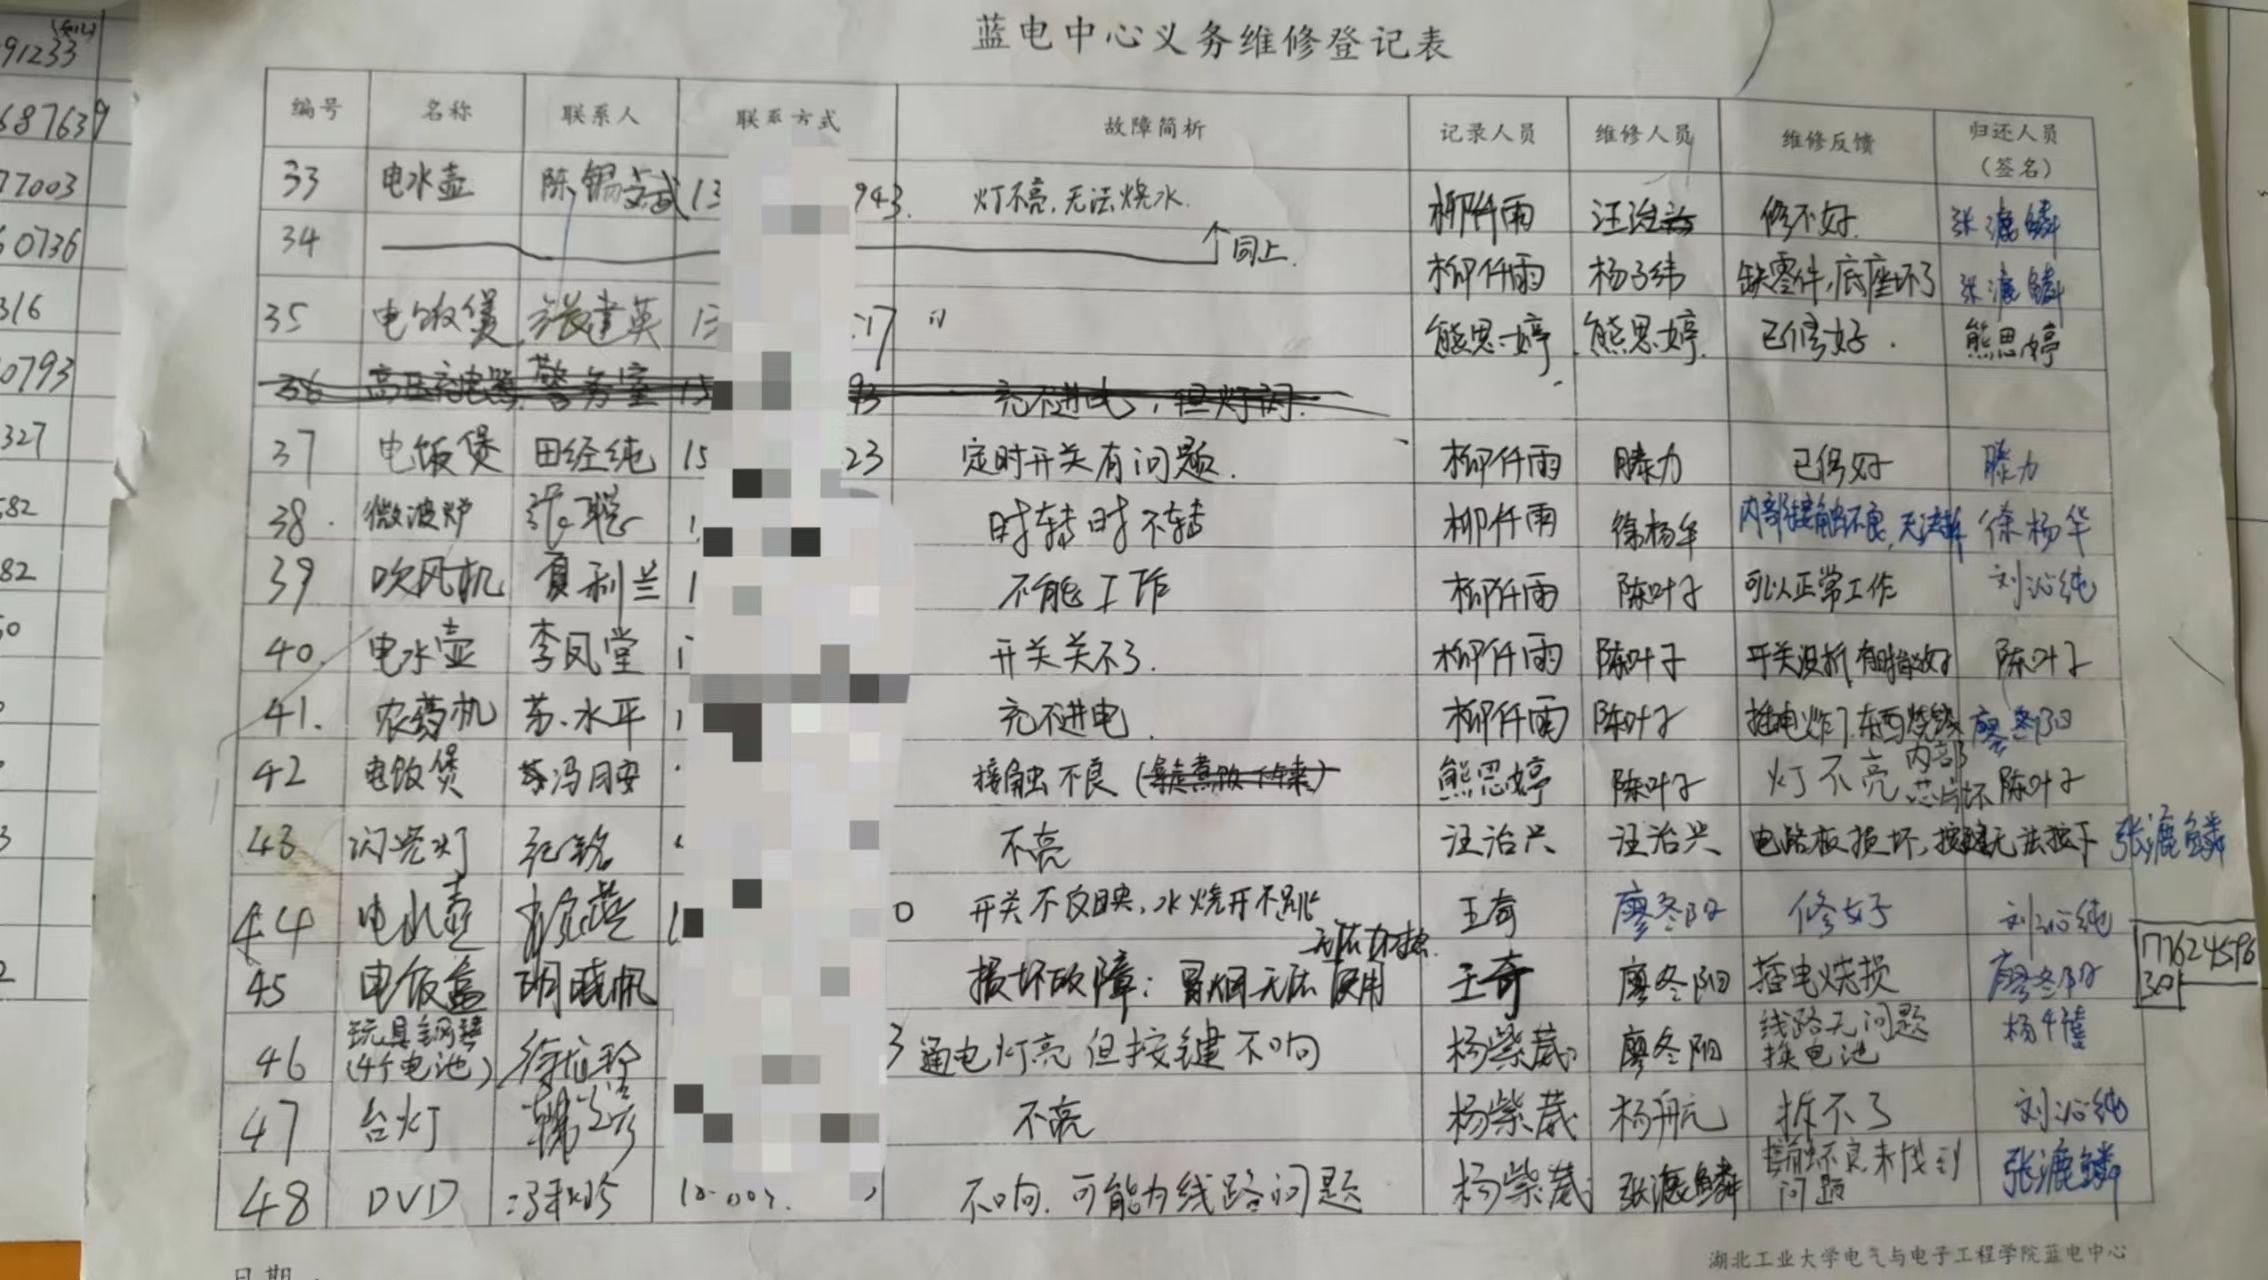 91233
687639
77003
60736
316
0793
327
582
82
蓝电中心义务维修登记表
编号 名称 联系人 联系方式 故障简析 记录人员 维修人员 维修反馈 归还人员(签名)
33 电水壶 陈锡 13 943. 灯不亮,无法烧水. 柳仟雨 汪治 修不好. 张漉鳞
34 ↑同上. 柳仟雨 杨子纬 缺零件,底座坏了 张漉鳞
35 电饭煲 张建英 13 17 熊思婷 熊思婷. 已修好. 熊思婷
36 高压充电器 警务室 15 93 充不进电,但灯闪.
37 电饭煲 田经纯 15 23 定时开关有问题. 柳仟雨 滕力 已修好 滕力
38. 微波炉 张聪 时转时不转 柳仟雨 徐杨华 内部接触不良,无法拆 徐杨华
39 吹风机 夏利兰 1 不能工作 柳仟雨 陈叶子 可以正常工作 刘沁纯
40. 电水壶 李凤堂 1 开关关不了. 柳仟雨 陈叶子 开关没拆 陈叶子
41. 农药机 苏水平 1 充不进电. 柳仟雨 陈叶子 插电炸了.东西烧毁 廖冬阳
42 电饭煲 冯同安 接触不良 熊思婷 陈叶子 灯不亮 内部芯片坏 陈叶子
43 闪光灯 纪铭 不亮 汪治兴 汪治兴 电路板损坏,按键无法按下 张漉鳞
44 电水壶 0 开关不反映,水烧开不跳 王奇 廖冬阳 修好 刘沁纯
45 电饭盒 胡晓帆 损坏故障:冒烟无法使用 王奇 廖冬阳 插电烧损 廖冬阳
77624596
301
46 玩具钢琴(4个电池) 3 通电灯亮但按键不响 杨紫葳 廖冬阳 线路无问题 换电池 杨千禧
47 台灯 不亮 杨紫葳 杨航 拆不了 刘沁纯
48 DVD 不响.可能为线路问题 杨紫葳 张漉鳞 接触不良未找到问题 张漉鳞
湖北工业大学电气与电子工程学院蓝电中心
日期: